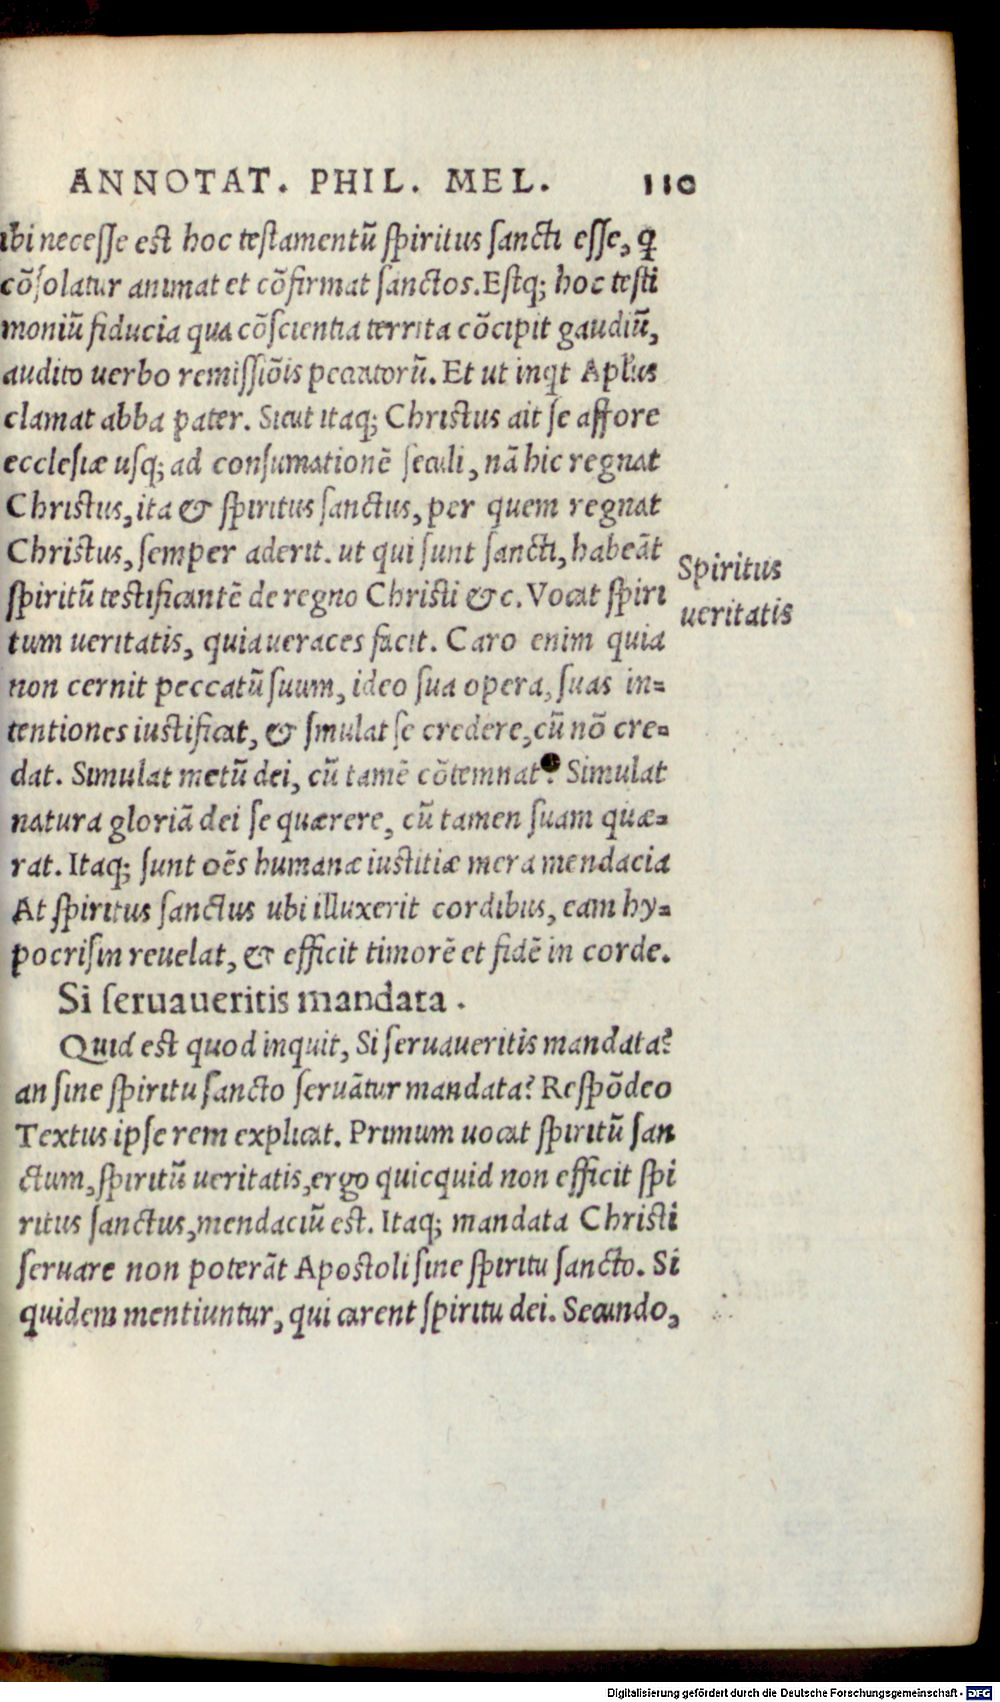 ANNOTAT. PHIL. MEL. 110
ibi necesse est hoc testamentū spiritus sancti esse, ꝗ
cōsolatur animat et cōfirmat sanctos. Estq; hoc testi
moniū fiducia qua cōscientia territa cōcipit gaudiū,
audito uerbo remissiōis peccatorū. Et ut inqt Aplus
clamat abba pater. Sicut itaq; Christus ait se affore
ecclesiæ usq; ad consumationē seculi, nā hic regnat
Christus, ita & spiritus sanctus, per quem regnat
Christus, semper aderit. ut qui sunt sancti, habeāt
spiritū testificantē de regno Christi &c. Vocat spiri
tum ueritatis, quia ueraces facit. Caro enim quia
non cernit peccatū suum, ideo sua opera, suas in=
tentiones iustificat, & smulat se credere, cū nō cre=
dat. Simulat metū dei, cū tamē cōtemnat. Simulat
natura gloriā dei se quærere, cū tamen suam quæ=
rat. Itaq; sunt oēs humanæ iustitiæ mera mendacia
At spiritus sanctus ubi illuxerit cordibus, eam hy=
pocrisin reuelat, & efficit timorē et fidē in corde.
Si seruaueritis mandata.
Quid est quod inquit, Si seruaueritis mandata?
an sine spiritu sancto seruātur mandata? Respōdeo
Textus ipse rem explicat. Primum uocat spiritū san
ctum, spiritū ueritatis, ergo quicquid non efficit spi
ritus sanctus, mendaciū est. Itaq; mandata Christi
seruare non poterāt Apostoli sine spiritu sancto. Si
quidem mentiuntur, qui carent spiritu dei. Secundo,
Spiritus
ueritatis
Digitalisierung gefördert durch die Deutsche Forschungsgemeinschaft - DFG